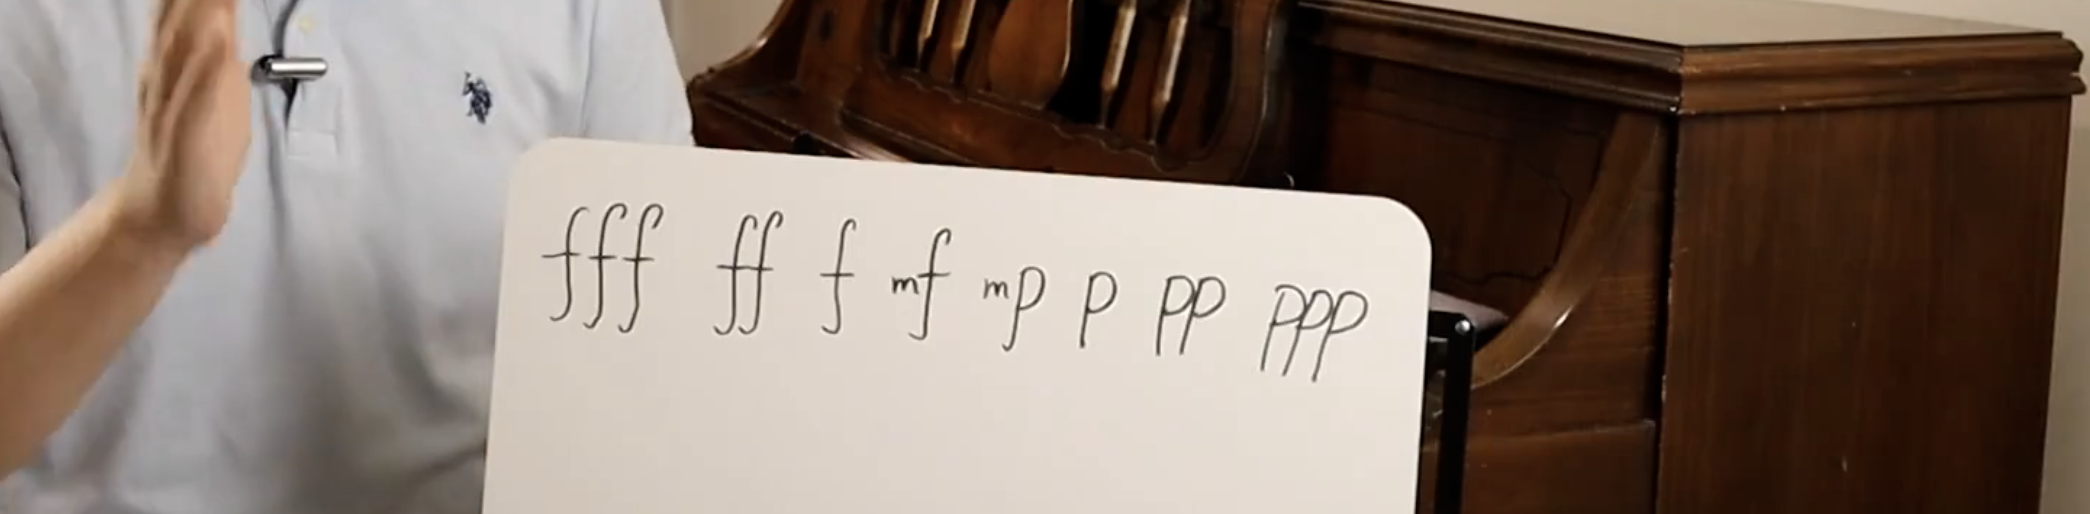 fff ff f mf mp p pp ppp